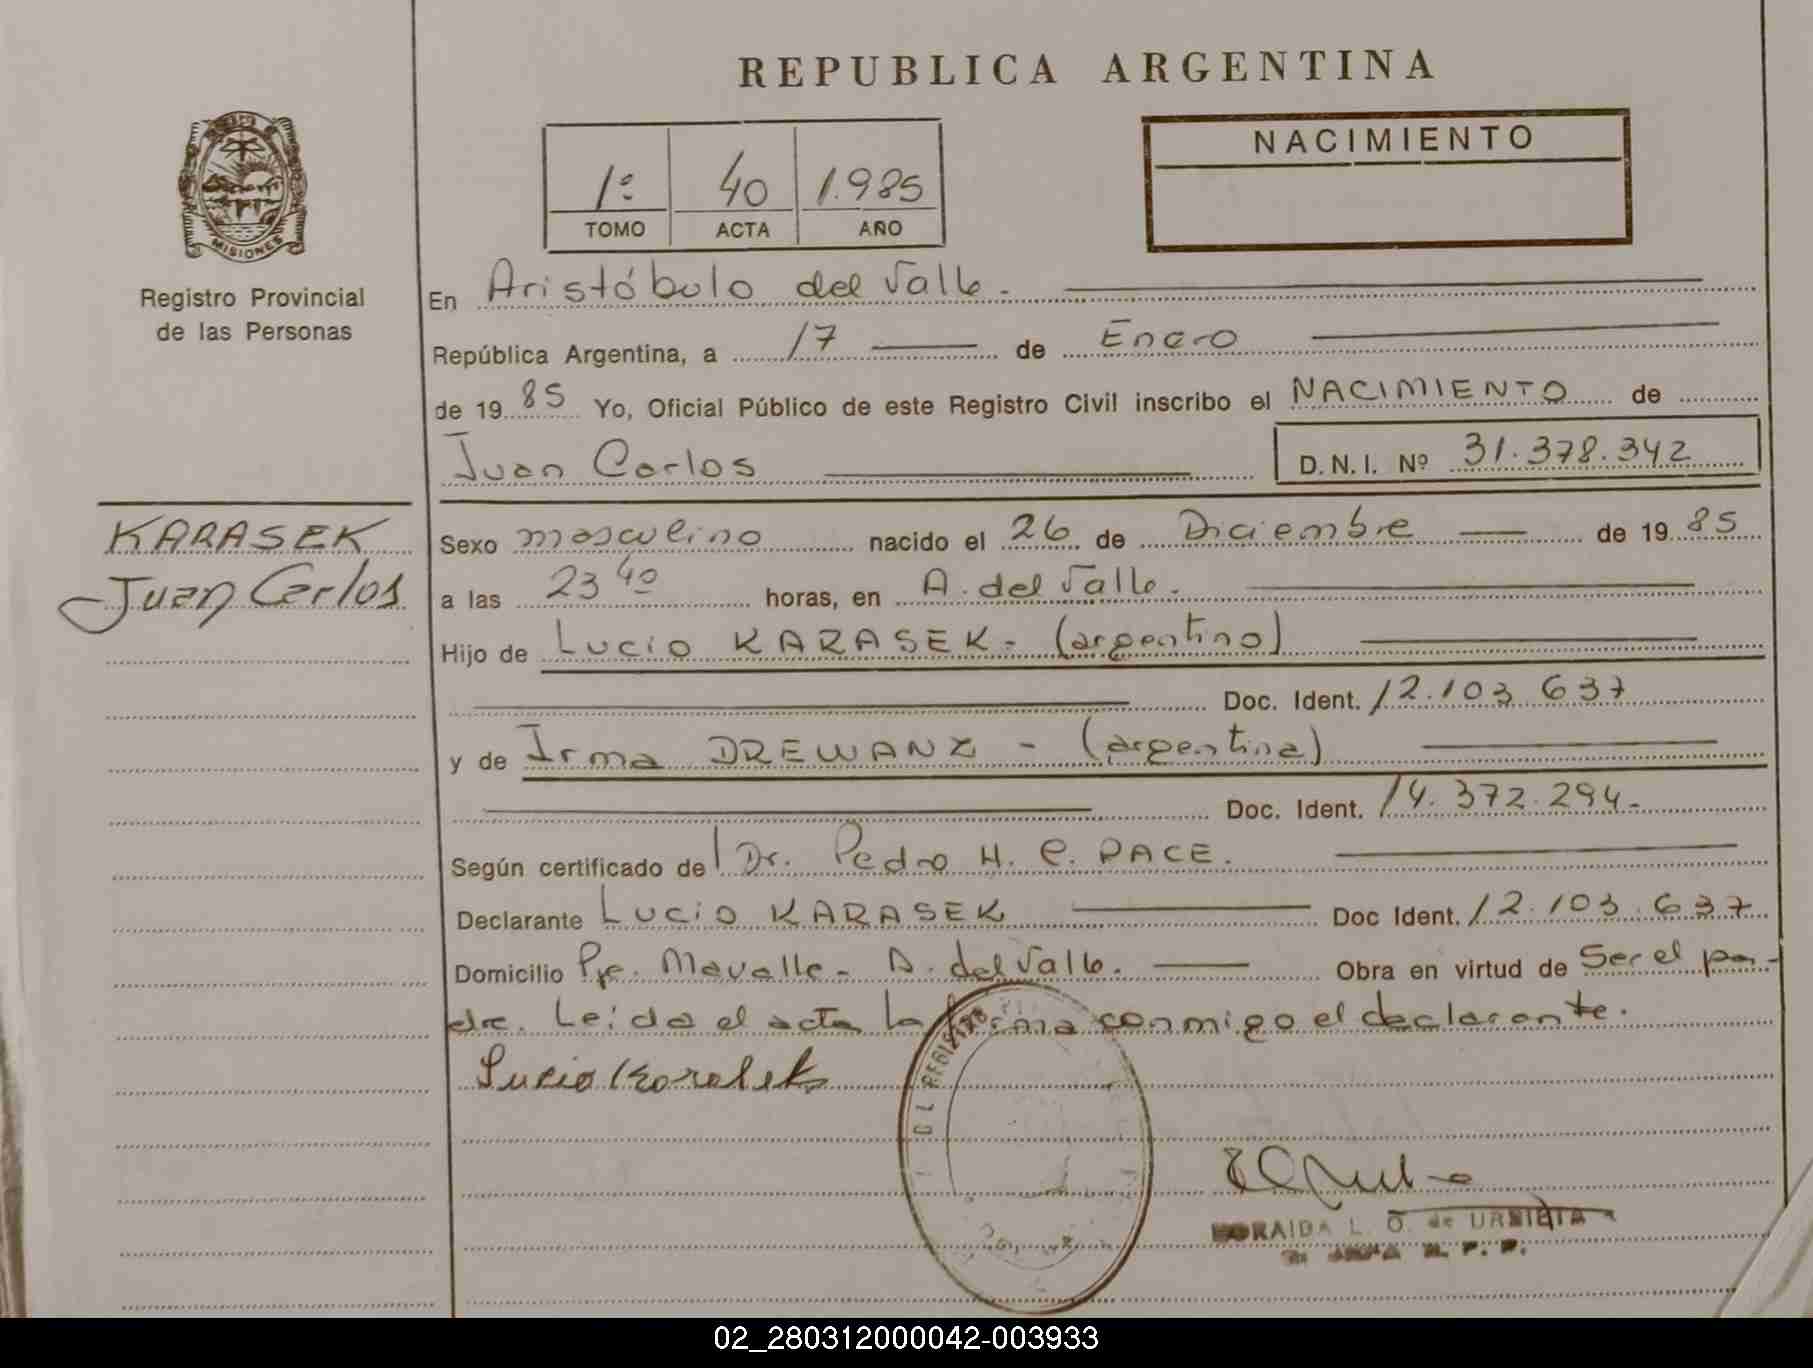 REPUBLICA ARGENTINA
NACIMIENTO
1º 40 1.985
TOMO ACTA AÑO
MISIONES
Registro Provincial
de las Personas
En Aristóbulo del Valle.
República Argentina, a 17 de Enero
de 1985 Yo, Oficial Público de este Registro Civil inscribo el NACIMIENTO de
Juan Carlos D.N.I. Nº 31.378.342
KARASEK
Juan Carlos
Sexo masculino nacido el 26 de Diciembre de 1985
a las 23 40 horas, en A. del Valle.
Hijo de Lucio KARASEK - (argentino)
Doc. Ident. 12.103 637
y de Irma DREWANZ - (argentina)
Doc. Ident. 14.372.294-
Según certificado de Dr. Pedro H. C. PACE.
Declarante LUCIO KARASEK Doc Ident. 12.103.637
Domicilio Pje. Mavalle - A. del Valle. Obra en virtud de Ser el pa-
dre. Leida el acta la firma conmigo el declarante.
Lucio Karasek
DEL REGISTRO
ORAIDA L. O. de URBIETA
02_280312000042-003933